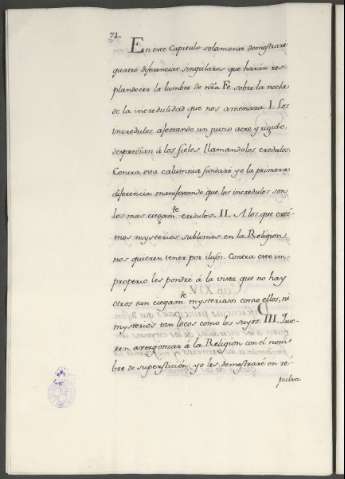 71.
En este Capitulo solamente demostraré
quatro diferencias singulares que harán res-
plandecer la lumbre de nra Fe sobre la noche
de la incredulidad que nos amenaza. I. Los
incredulos, afectando un juicio acre, y rigido,
desprecian á los fieles llamandoles credulos.
Contra esta calumnia fundaré yo la primera
diferencia manifestando que los incredulos son
los mas ciegamte credulos. II. A los que cree-
mos mysterios sublimes en la Religion,
nos quieren tener por ilusos. Contra este im-
properio les pondré á la vista que no hay
otros tan ciegamte mysteriosos como ellos, ni
mysterios tan locos como los suyos. III. Quie-
ren avergonzar á la Religion con el nom-
bre de supersticion, y yo les demostraré en re-
pulsa